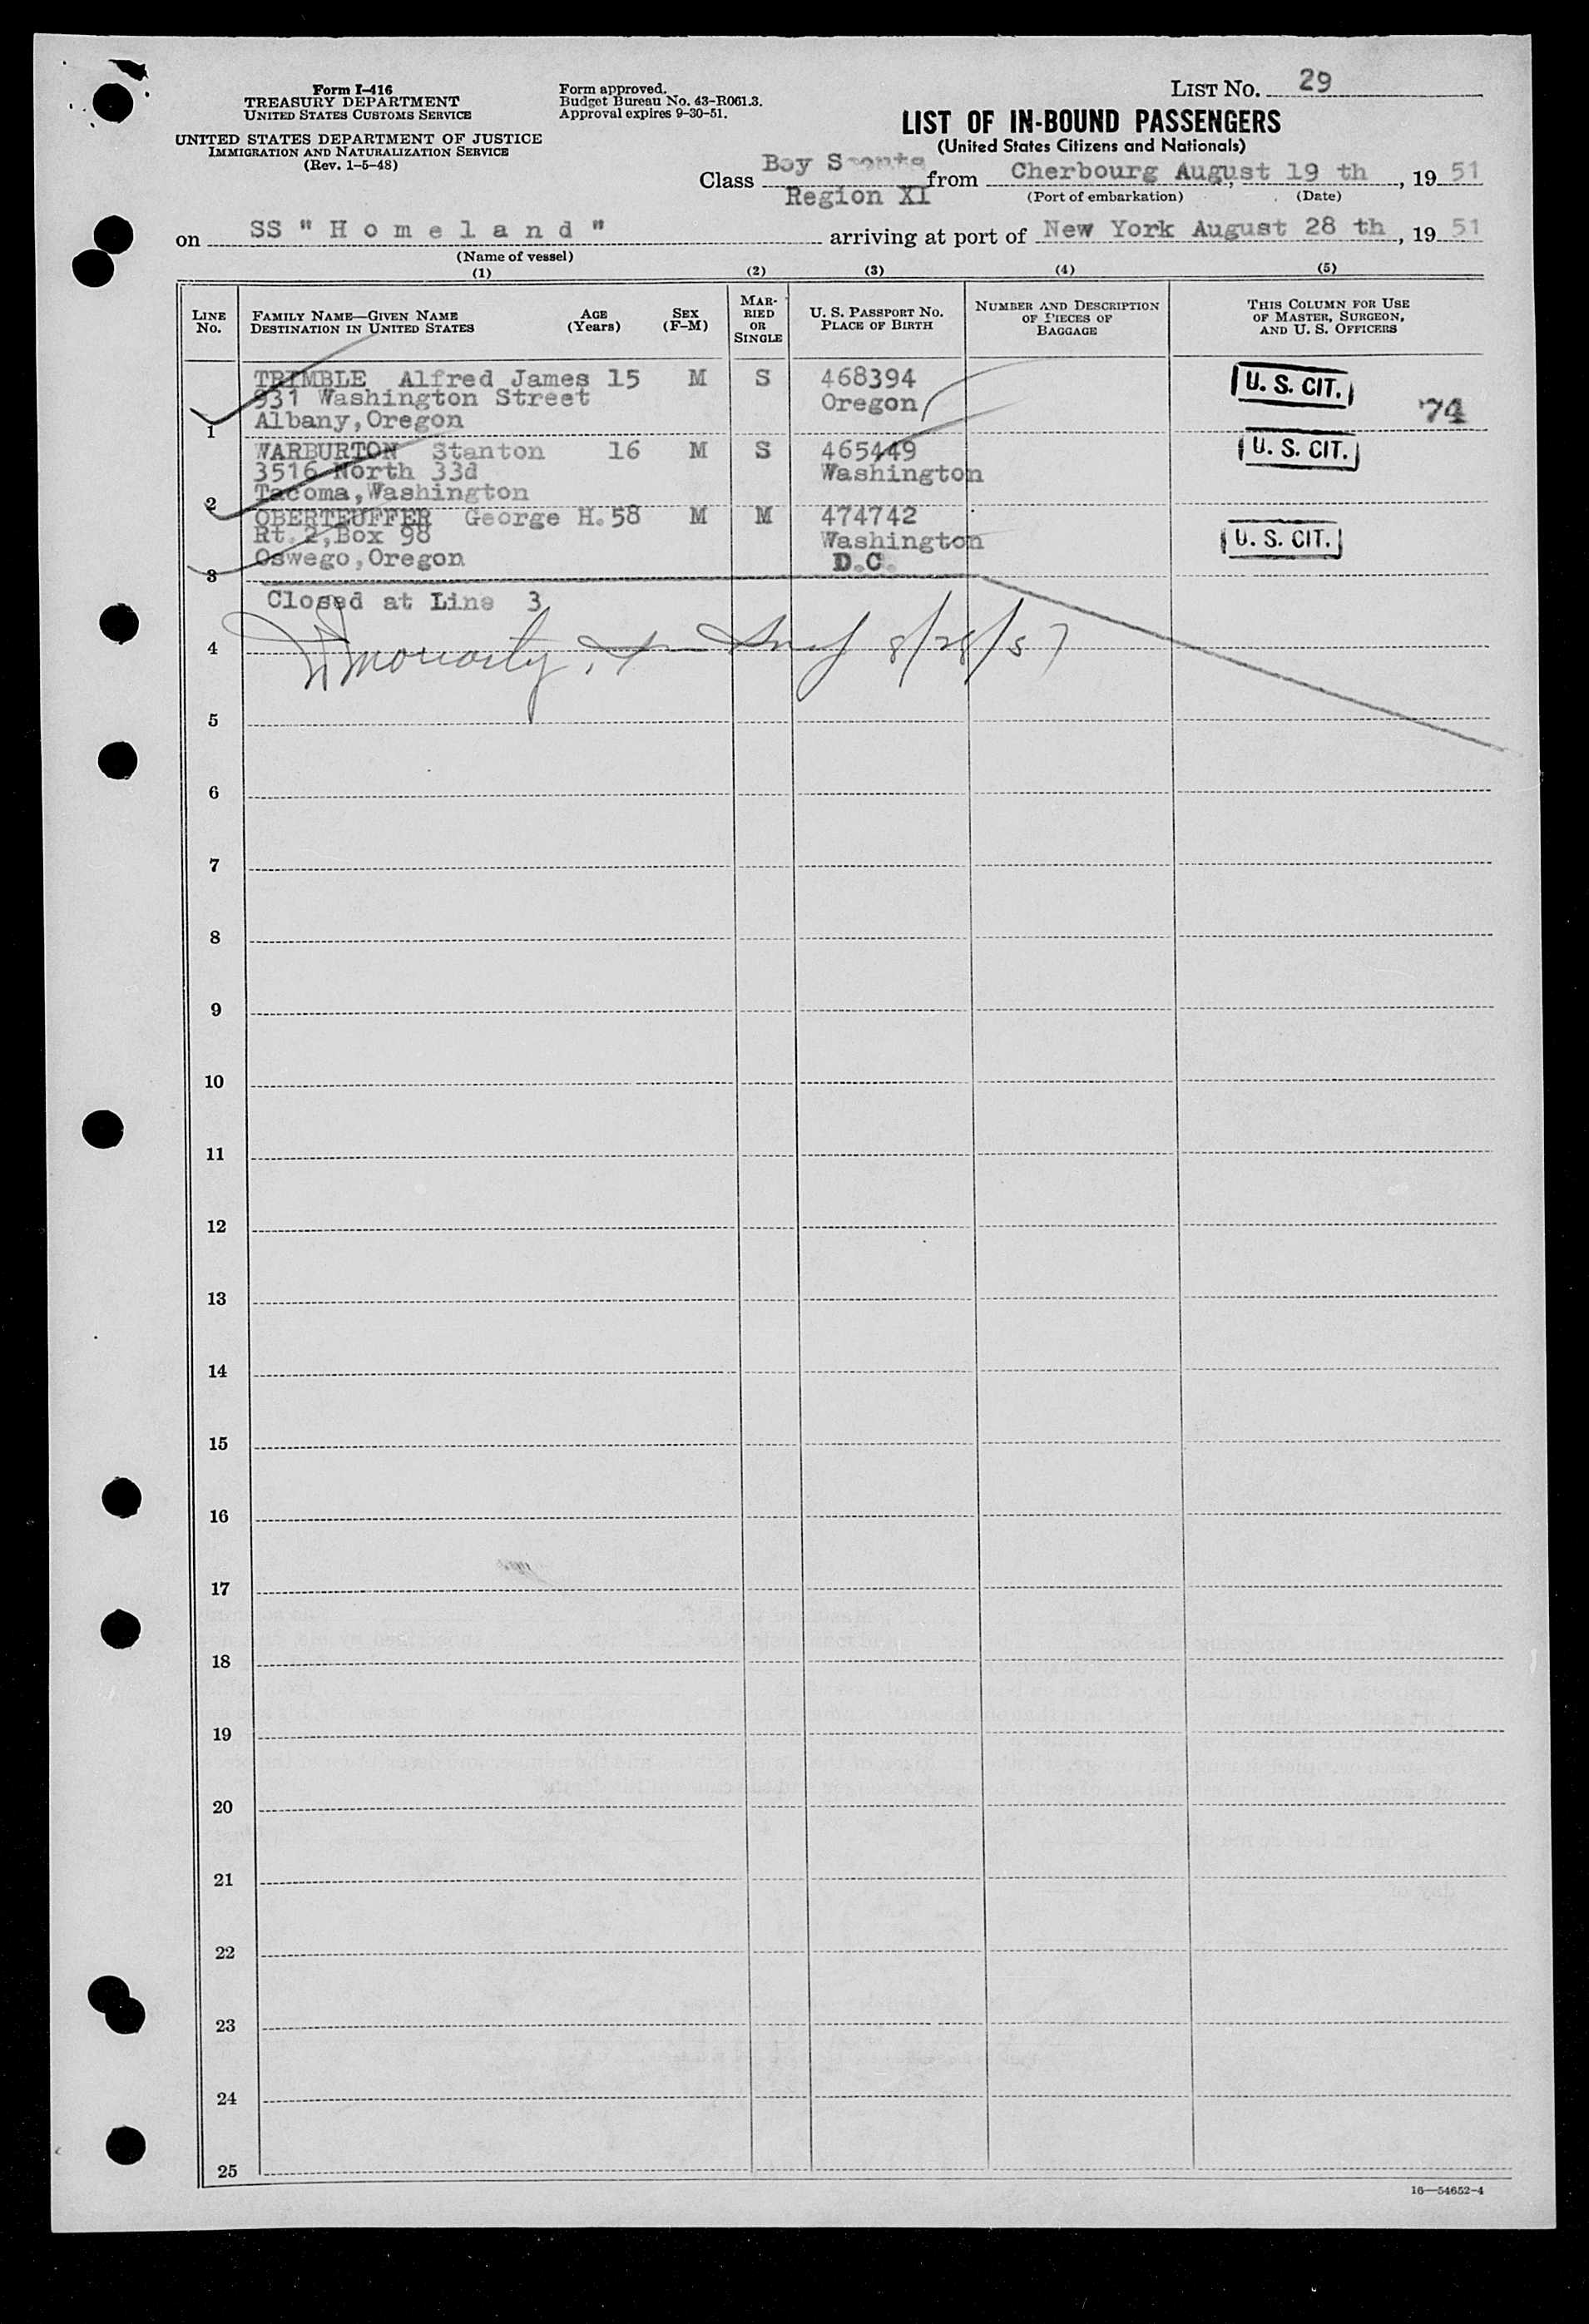 Form I-416
TREASURY DEPARTMENT
UNITED STATES CUSTOMS SERVICE
UNITED STATES DEPARTMENT OF JUSTICE
IMMIGRATION AND NATURALIZATION SERVICE
(Rev. 1-5-48)
Form approved.
Budget Bureau No. 43-R061.3.
Approval expires 9-30-51.
LIST NO. 29
LIST OF IN-BOUND PASSENGERS
(United States Citizens and Nationals)
Class Boy Scouts from Cherbourg August, 19 th, 19 51
Region XI (Port of embarkation) (Date)
on SS " H o m e l a n d " arriving at port of New York August 28 th, 19 51
(Name of vessel)
(1) (2) (3) (4) (5)
LINE NO. FAMILY NAME—GIVEN NAME DESTINATION IN UNITED STATES AGE (Years) SEX (F-M) MARRIED OR SINGLE U. S. PASSPORT NO. PLACE OF BIRTH NUMBER AND DESCRIPTION OF PIECES OF BAGGAGE THIS COLUMN FOR USE OF MASTER, SURGEON, AND U. S. OFFICERS
TRIMBLE Alfred James 15 M S 468394 U. S. CIT.
931 Washington Street Oregon 74
1 Albany, Oregon
WARBURTON Stanton 16 M S 465449 U. S. CIT.
3516 North 33d Washington
2 Tacoma, Washington
OBERTEUFFER George H. 58 M M 474742
Rt. 2, Box 98 Washington U. S. CIT.
3 Oswego, Oregon D.C.
Closed at Line 3
4 Moriarty 8/28/51
5
6
7
8
9
10
11
12
13
14
15
16
17
18
19
20
21
22
23
24
25
16—54652-4